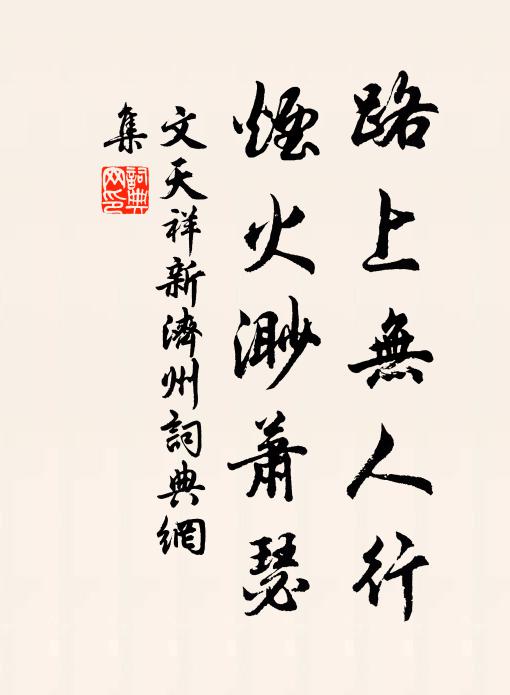 路上無人行
煙火渺蕭瑟
文天祥新濟州詞典網
集
詞典
网印